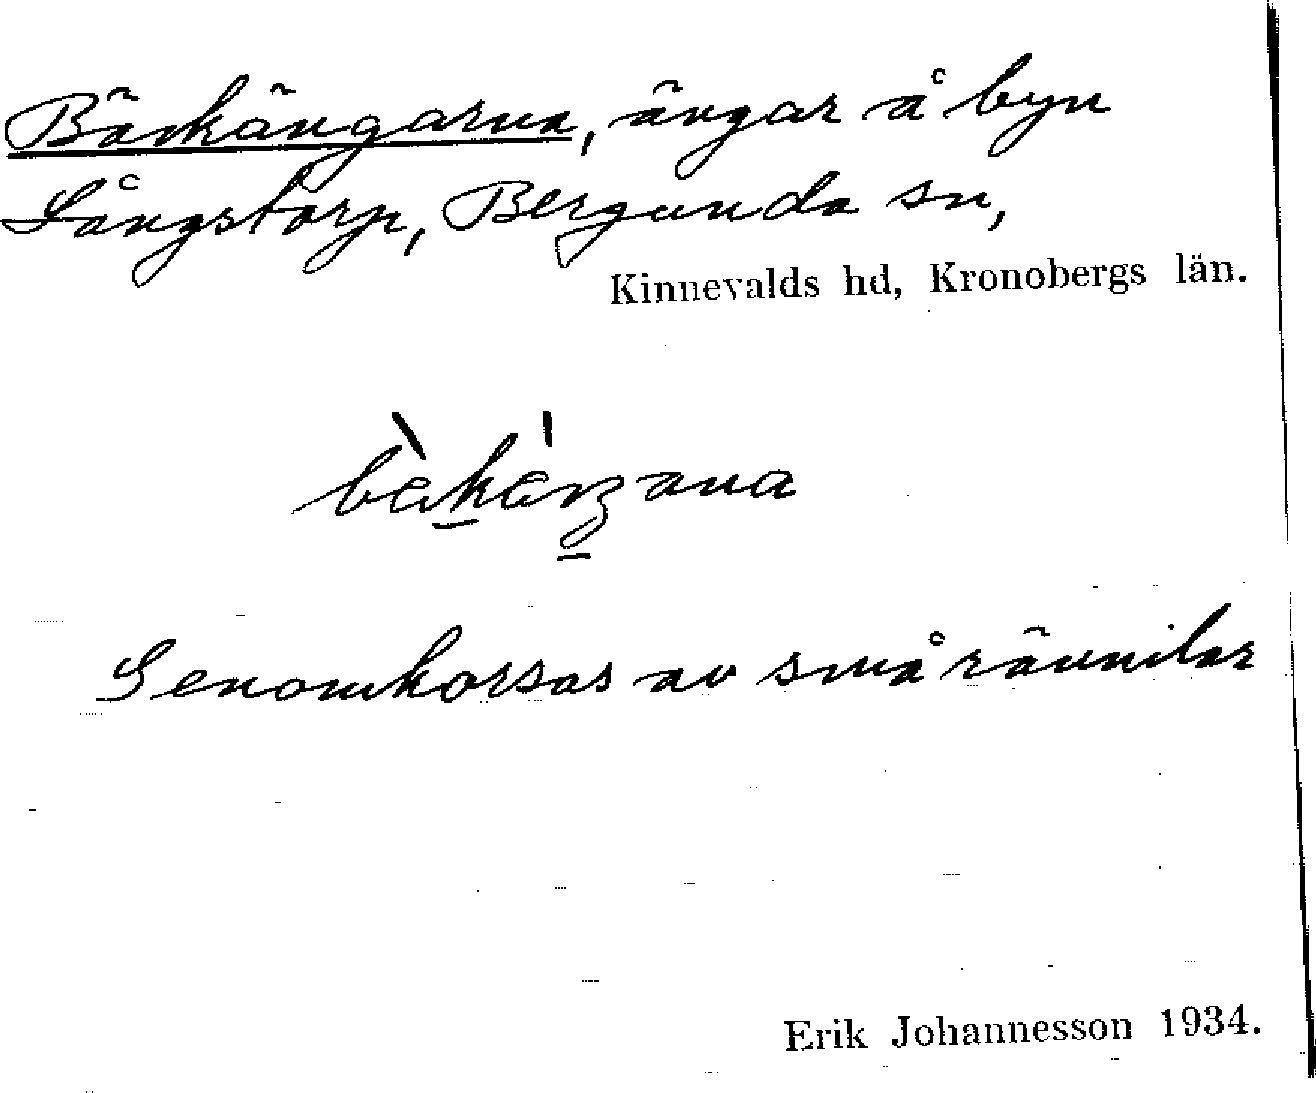 Bäckängarna, ängar å byn
Långstorp, Bergunda sn,
Kinnevalds hd, Kronobergs län.
Genomkorsas av små rännilar
Erik Johannesson 1934.